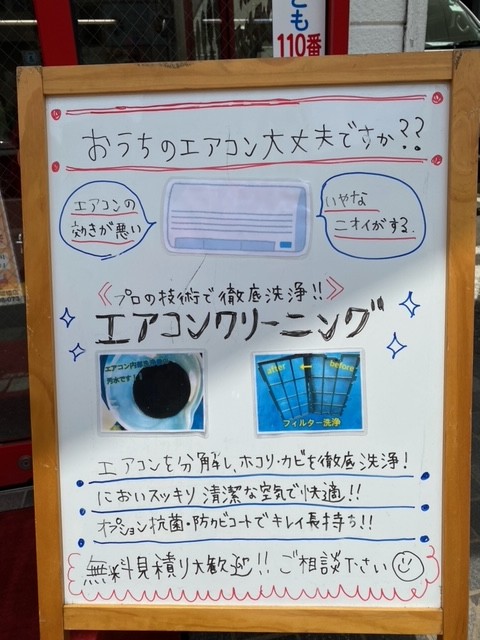 とも
110番
おうちのエアコン大丈夫ですか??
エアコンの
効きが悪い
いやな
ニオイがする.
《プロの技術で徹底洗浄!!》
エアコンクリーニング
エアコン内部洗浄の
汚水です!!
after ← before
フィルター洗浄
エアコンを分解し、ホコリ・カビを徹底洗浄!
においスッキリ 清潔な空気で快適!!
オプション抗菌・防カビコートでキレイ長持ち!!
無料見積り大歓迎!! ご相談下さい